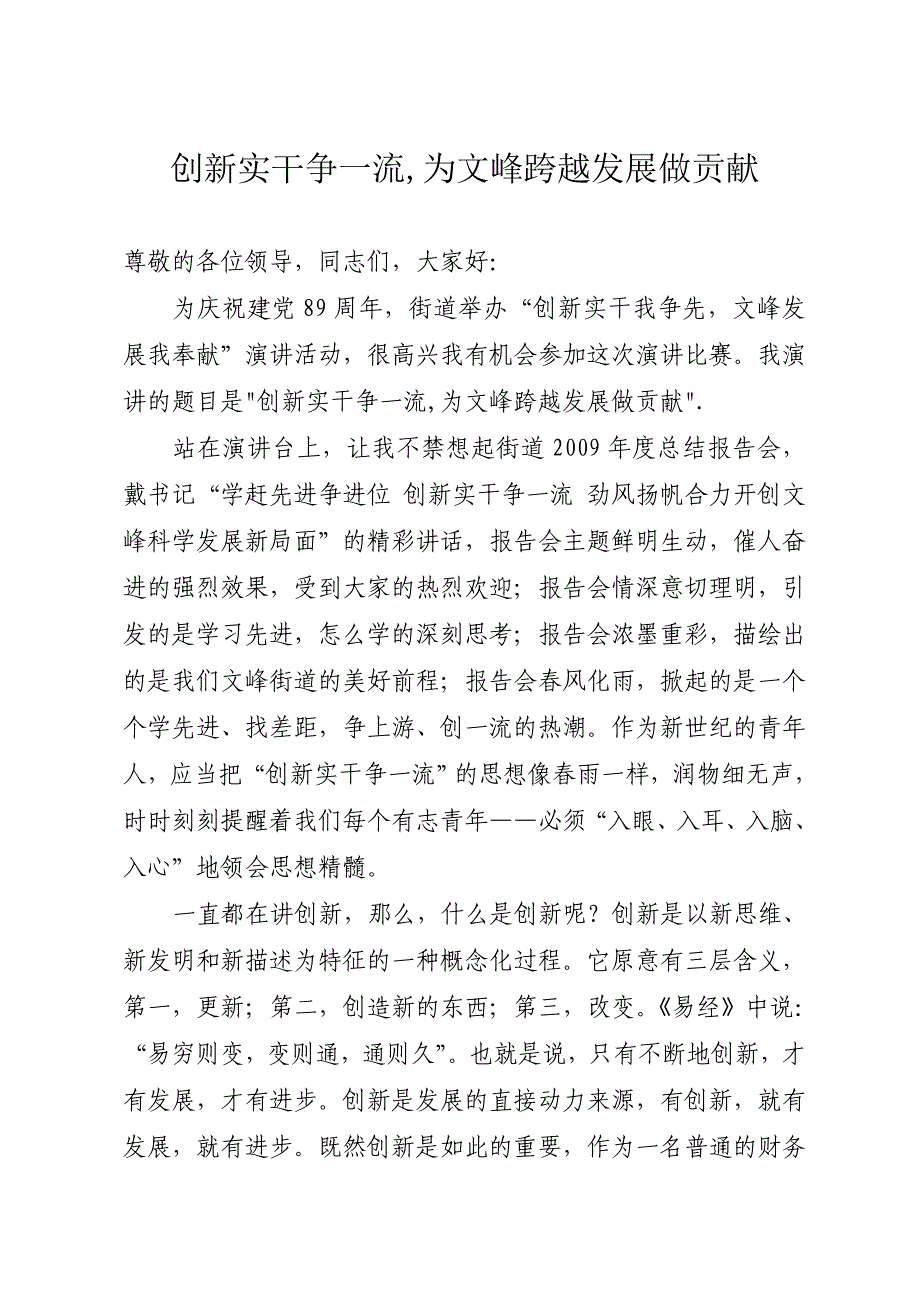 创新实干争一流,为文峰跨越发展做贡献
尊敬的各位领导，同志们，大家好：
为庆祝建党 89 周年，街道举办“创新实干我争先，文峰发
展我奉献”演讲活动，很高兴我有机会参加这次演讲比赛。我演
讲的题目是"创新实干争一流,为文峰跨越发展做贡献".
站在演讲台上，让我不禁想起街道 2009 年度总结报告会，
戴书记“学赶先进争进位 创新实干争一流 劲风扬帆合力开创文
峰科学发展新局面”的精彩讲话，报告会主题鲜明生动，催人奋
进的强烈效果，受到大家的热烈欢迎；报告会情深意切理明，引
发的是学习先进，怎么学的深刻思考；报告会浓墨重彩，描绘出
的是我们文峰街道的美好前程；报告会春风化雨，掀起的是一个
个学先进、找差距，争上游、创一流的热潮。作为新世纪的青年
人，应当把“创新实干争一流”的思想像春雨一样，润物细无声，
时时刻刻提醒着我们每个有志青年——必须“入眼、入耳、入脑、
入心”地领会思想精髓。
一直都在讲创新，那么，什么是创新呢？创新是以新思维、
新发明和新描述为特征的一种概念化过程。它原意有三层含义，
第一，更新；第二，创造新的东西；第三，改变。《易经》中说：
“易穷则变，变则通，通则久”。也就是说，只有不断地创新，才
有发展，才有进步。创新是发展的直接动力来源，有创新，就有
发展，就有进步。既然创新是如此的重要，作为一名普通的财务